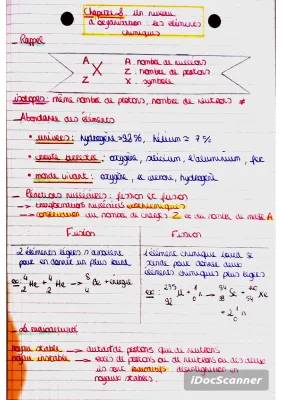 Chapitre 8 : Un niveau
d'organisation : les éléments
chimiques
_ Rappel
A A : nombre de nucléons
X Z : nombre de protons
Z X : symbole
isotopes : même nombre de protons, nombre de neutrons ≠
_ Abondance des éléments
• univers : hydrogène ≈ 92%, hélium ≈ 7%
• croûte terrestre : oxygène, silicium, l'aluminium, fer
• monde vivant : oxygène, carbone, hydrogène
_ Réactions nucléaires : fission et fusion
→ transformation nucléaires
→ conservation du nombre de charge Z et du nombre de masse A
Fusion Fission
2 éléments légers s'assemblent
pour en donner un plus lourd
1 élément chimique lourd se
scinde pour donner deux
éléments chimiques plus légers
ex: 4 2 He + 4 2 He → 8 4 Be + énergie
ex: 235 92 U + 1 0 n → 94 38 Sr + 140 54 Xe
+ 2 1 0 n
_ La radioactivité
noyau stable → autant de protons que de neutrons
noyau instable → excès de protons ou de neutrons ou des deux
désintégration en
noyaux stables.
iDocScanner